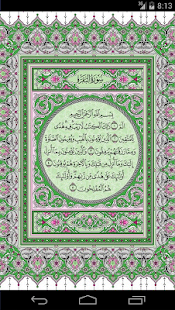 8:13
سُورَةُ البَقَرَةِ
بِسْمِ ٱللَّهِ ٱلرَّحْمَٰنِ ٱلرَّحِيمِ
الٓمٓ ١ ذَٰلِكَ ٱلْكِتَٰبُ لَا رَيْبَ ۛ فِيهِ ۛ هُدًى
لِّلْمُتَّقِينَ ٢ ٱلَّذِينَ يُؤْمِنُونَ بِٱلْغَيْبِ وَيُقِيمُونَ
ٱلصَّلَوٰةَ وَمِمَّا رَزَقْنَٰهُمْ يُنفِقُونَ ٣ وَٱلَّذِينَ يُؤْمِنُونَ
بِمَآ أُنزِلَ إِلَيْكَ وَمَآ أُنزِلَ مِن قَبْلِكَ وَبِٱلْءَاخِرَةِ
هُمْ يُوقِنُونَ ٤ أُو۟لَٰٓئِكَ عَلَىٰ هُدًى مِّن رَّبِّهِمْ وَأُو۟لَٰٓئِكَ
هُمُ ٱلْمُفْلِحُونَ ٥